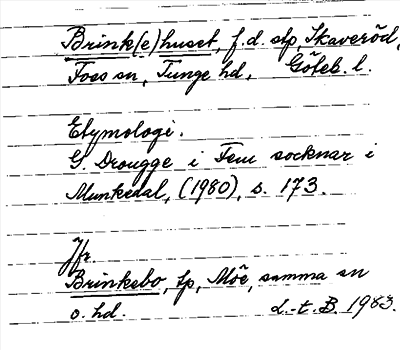 Brink(e)huset, f.d. stp, Skaveröd,
Foss sn, Tunge hd, Göteb. l.
Etymologi.
G. Drougge i Fem socknar i
Munkedal, (1980), s. 173.
Jfr.
Brinkebo, tp, Möe, samma sn
o. hd. L.-t. B. 1983.